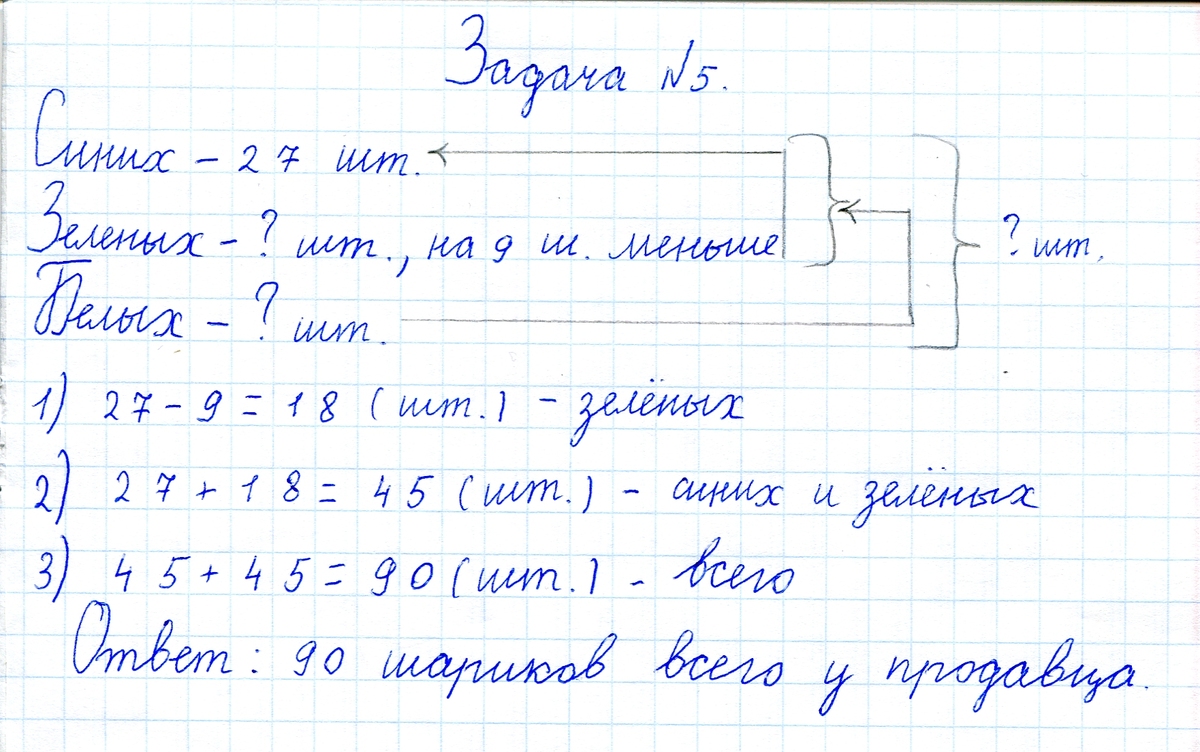 Задача №5.
Синих - 27 шт.
Зеленых - ? шт., на 9 ш. меньше
? шт.
Белых - ? шт.
1) 27 - 9 = 18 (шт.) - зелёных
2) 27 + 18 = 45 (шт.) - синих и зелёных
3) 45 + 45 = 90 (шт.) - всего
Ответ: 90 шариков всего у продавца.